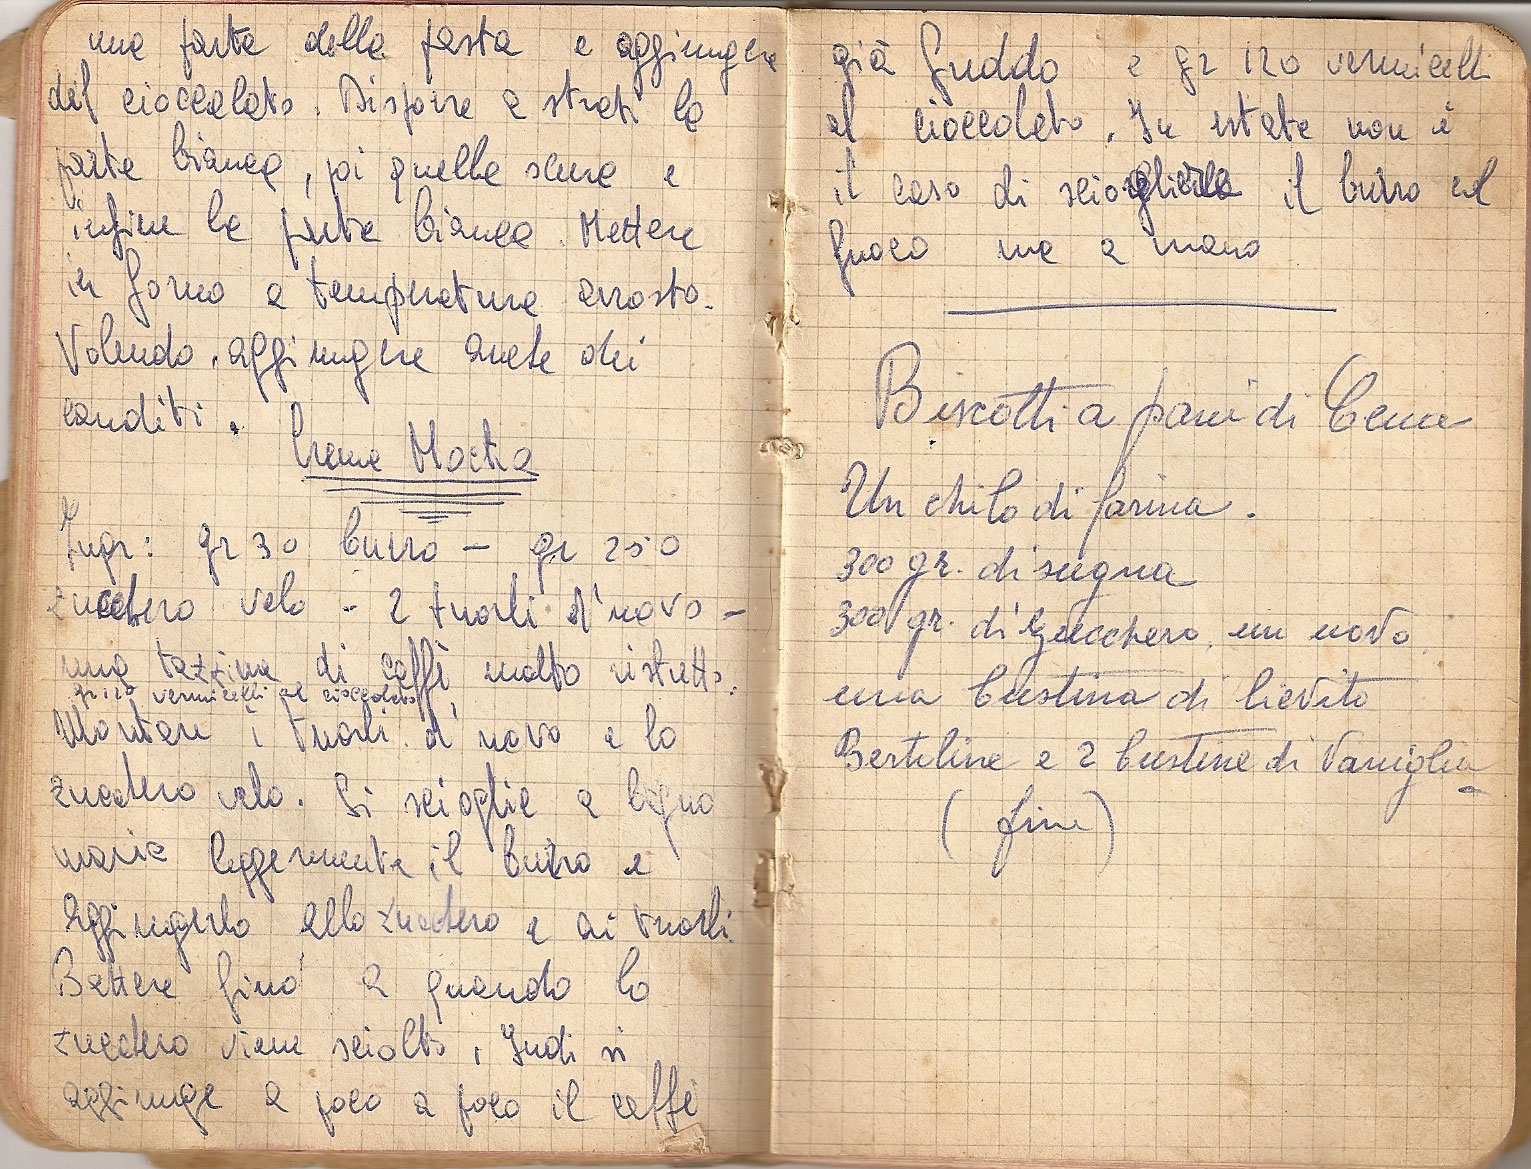 una parte della pasta e aggiungere
del cioccolato. Disporre a strati la
parte bianca, poi quella scura e
infine la parte bianca. Mettere
in forno a temperatura arrosto.
Volendo, aggiungere anche dei
canditi.
Creme Mocka
Ingr: gr 30 burro - gr 250
zucchero velo - 2 tuorli d'uovo -
una tazzina di caffè molto ristretto.
gr 120 vermicelli al cioccolato
Montare i tuorli d'uovo e lo
zucchero velo. Si scioglie a bagno
maria leggermente il burro e
aggiungerlo allo zucchero e ai tuorli.
Battere fino a quando lo
zucchero viene sciolto, Indi si
aggiunge a poco a poco il caffè
già freddo e gr 120 vermicelli
al cioccolato. In estate non è
il caso di sciogliere il burro sul
fuoco ma a mano
Biscotti a pani di Cena
Un chilo di farina.
300 gr. di sugna
300 gr. di zucchero, un uovo
una bustina di lievito
Bertoline e 2 bustine di Vaniglia
( fine )